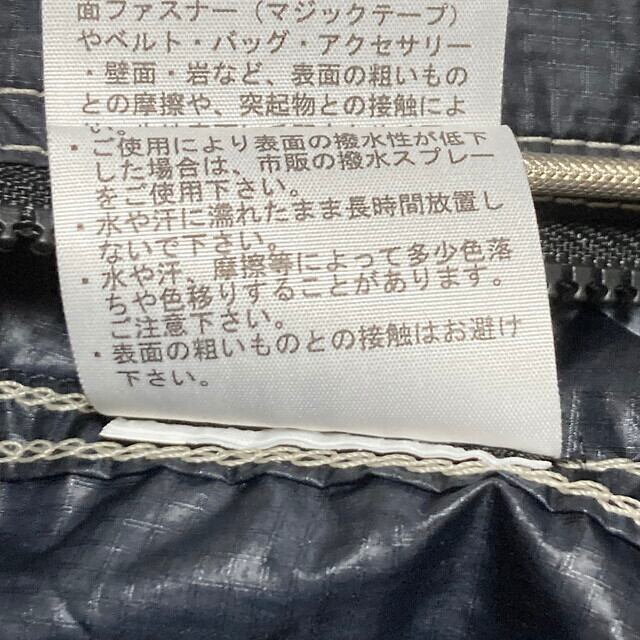 面ファスナー（マジックテープ）
やベルト・バッグ・アクセサリー
・壁面・岩など、表面の粗いもの
との摩擦や、突起物との接触によ
・ご使用により表面の撥水性が低下
した場合は、市販の撥水スプレー
をご使用下さい。
・水や汗に濡れたまま長時間放置し
ないで下さい。
・水や汗、摩擦等によって多少色落
ちや色移りすることがあります。
ご注意下さい。
・表面の粗いものとの接触はお避け
下さい。